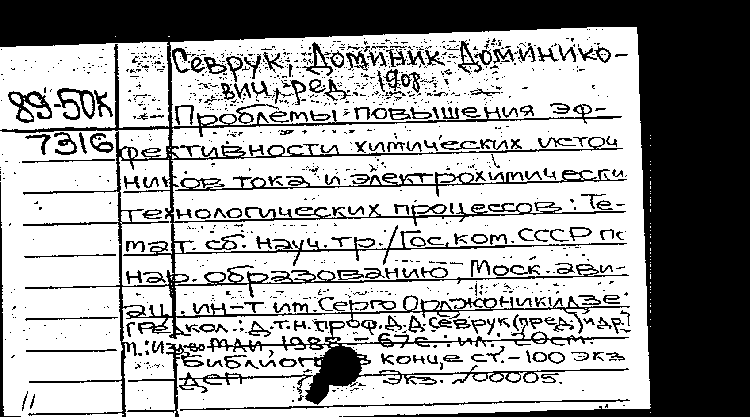 Севрук, Доминик Доминико-
вич, ред. 1908
89-50К
Проблемы повышения эф-
7316
фективности химических источ
ников тока и электрохимически
технологических процессов: Те-
мат. сб. науч. тр. / Гос. ком. СССР по
нар. образованию, Моск. ави-
ац. ин-т им. Серго Орджоникидзе
[Редкол.: д.т.н. проф. Д.Д. Севрук (пред.) и др.]
М.: Изд-во МАИ, 1988 - 67 с.: ил.; 20 см.
Библиогр. в конце ст. - 100 экз
ДЕП Экз. №00005.
11